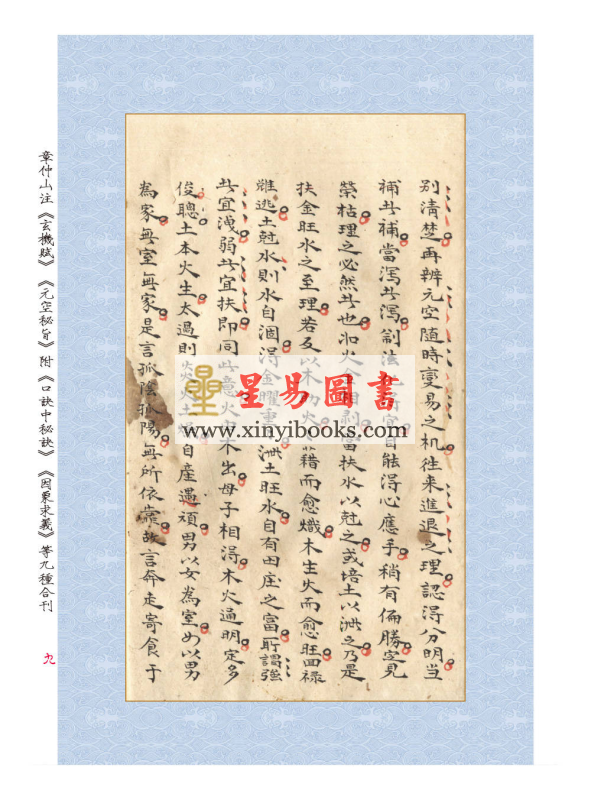 別清楚再辨元空隨時變易之机往來進退之理認得分明當
補此補當瀉此瀉制法
得宜自能得心應手稍有偏勝定見
榮枯理之必然此也
火金相剋當扶水以尅之或培土以洩之乃是
扶金旺水之至理若反以木
藉而愈熾木生火而愈旺回禄
難逃土尅水則水自涸得金曜
洩土旺水自有田庄之富所謂強
此宜洩弱此宜扶即同此意火
木出母子相得木火通明定多
俊聰土本火生太過則
自產遇頑男以女為室女以男
為家無室無家是言孤陰孤陽無所依靠故言奔走寄食于
星 星易圖書
www.xinyibooks.com
章仲山注《玄機賦》《元空秘旨》附《口訣中秘訣》《因象求義》等九種合刊
九